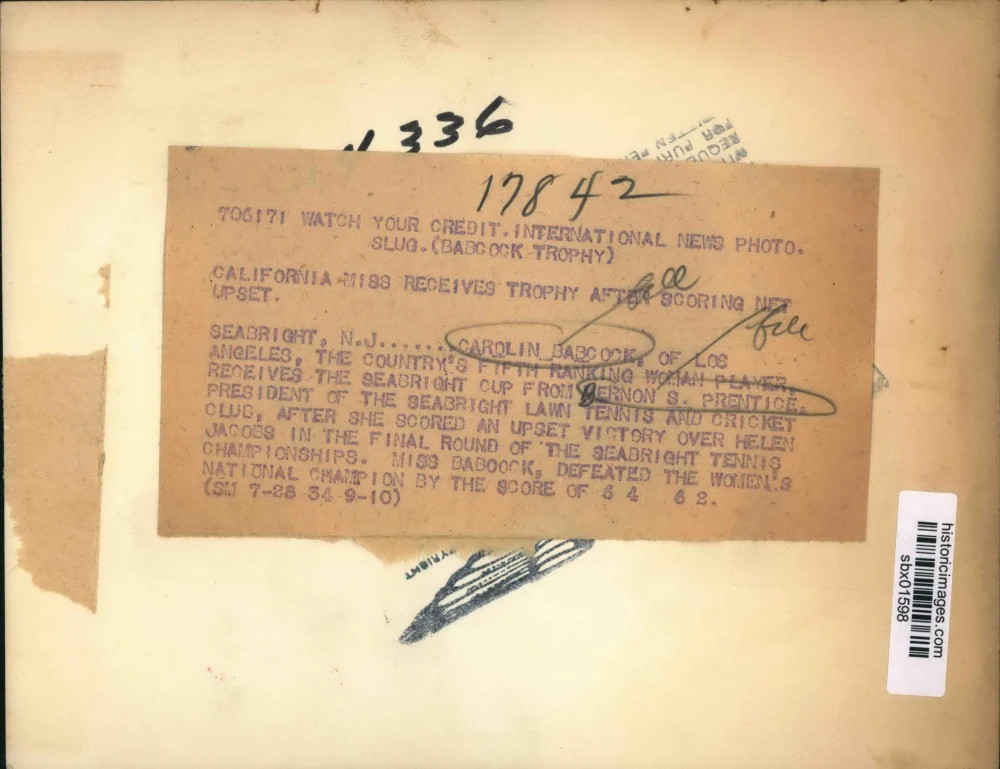 336
17842
706171 WATCH YOUR CREDIT.INTERNATIONAL NEWS PHOTO.
SLUG.(BABCOCK TROPHY)
CALIFORNIA MISS RECEIVES TROPHY AFTER SCORING NET
UPSET.
fill
file
SEABRIGHT, N.J.......CAROLIN BABCOCK, OF LOS
ANGELES, THE COUNTRY'S FIFTH RANKING WOMAN PLAYER,
RECEIVES THE SEABRIGHT CUP FROM BERNON S. PRENTICE,
PRESIDENT OF THE SEABRIGHT LAWN TENNIS AND CRICKET
CLUB, AFTER SHE SCORED AN UPSET VICTORY OVER HELEN
JACOBS IN THE FINAL ROUND OF THE SEABRIGHT TENNIS
CHAMPIONSHIPS. MISS BABOOCK, DEFEATED THE WOMEN'S
NATIONAL CHAMPION BY THE SCORE OF 6 4 6 2.
(SM 7-28 34 9-10)
historicimages.com
sbx01598